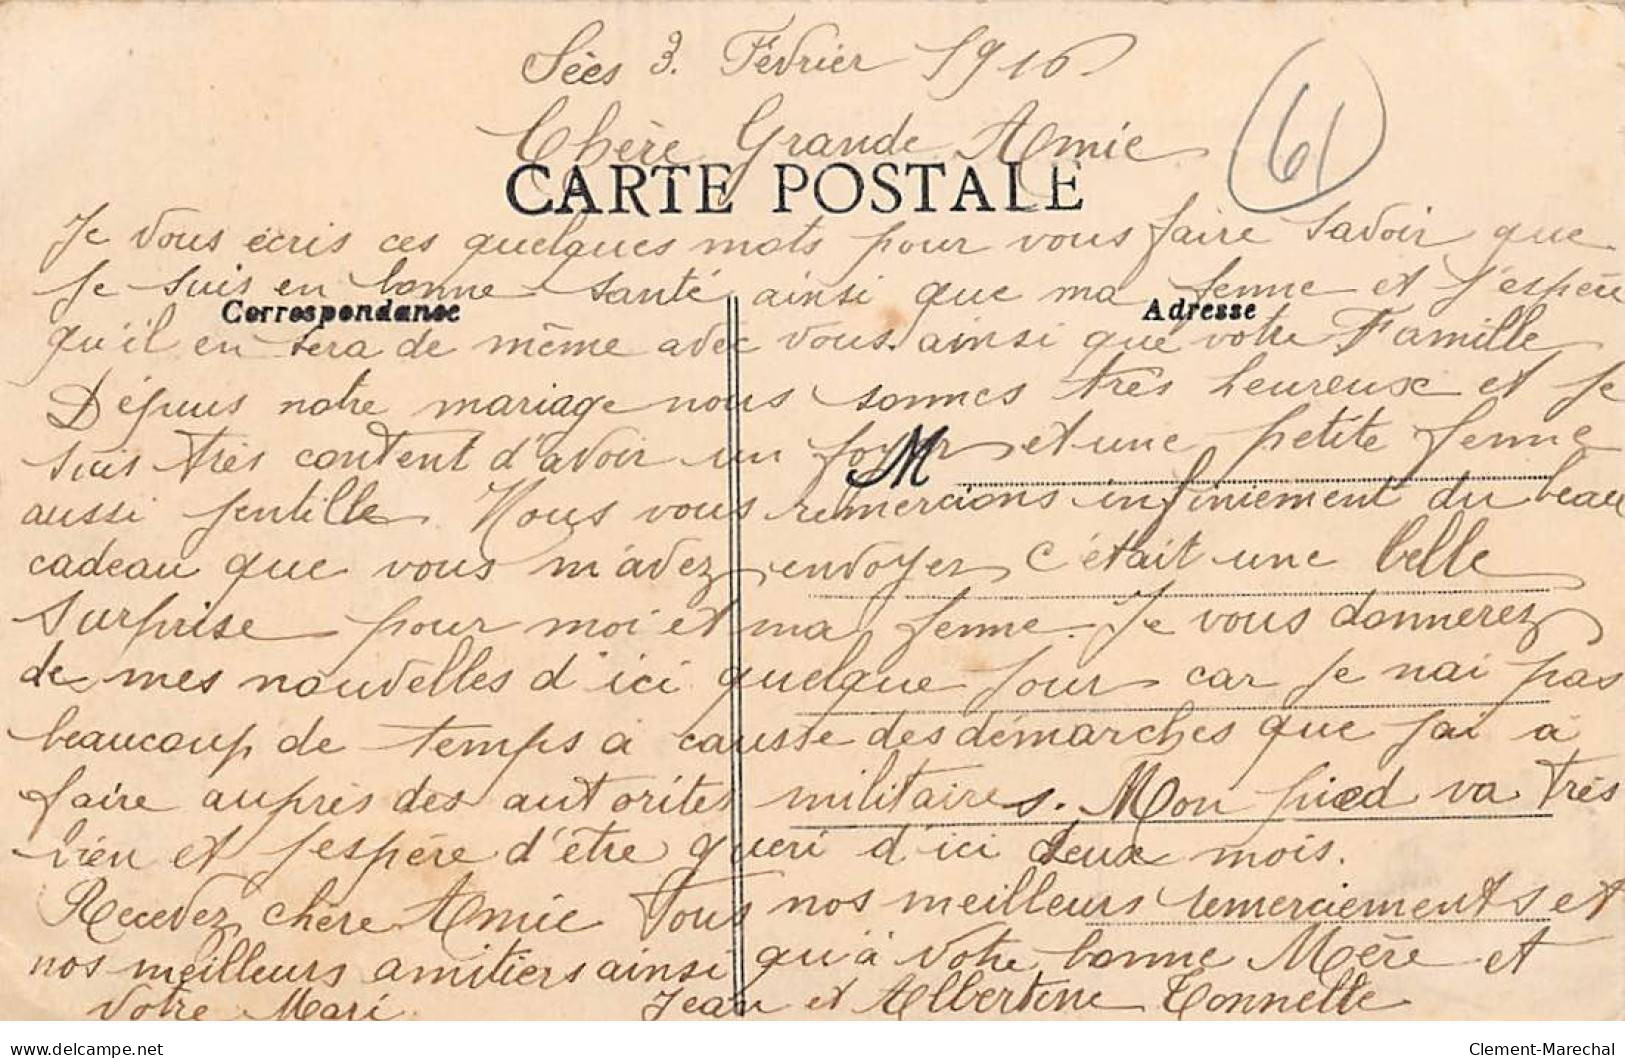 Sèes 3. Février 1916
Chère Grande Amie
61
CARTE POSTALE
Je vous écris ces quelques mots pour vous faire savoir que
je suis en bonne santé ainsi que ma femme et j'espère
Correspondance
Adresse
qu'il en sera de même avec vous ainsi que votre Famille
Dépuis notre mariage nous sommes très heureuse et je
suis très content d'avoir un foyer et une petite femme
M
aussi jentille. Nous vous remercions infiniement du beau
cadeau que vous m'avez envoyer c'était une belle
surprise pour moi et ma femme. Je vous donnerez
de mes nouvelles d'ici quelque jour car je nai pas
beaucoup de temps a causse des démarches que jai à
faire auprès des autorités militaires. Mon pied va très
bien et j'espère d'être queri d'ici deux mois.
Recevez chère Amie Tous nos meilleurs remerciements et
nos meilleurs amitiers ainsi qu'à votre bonne Mère et
votre Mari. Jean et Albertine Tonnelle
delcampe.net
Clement-Marechal